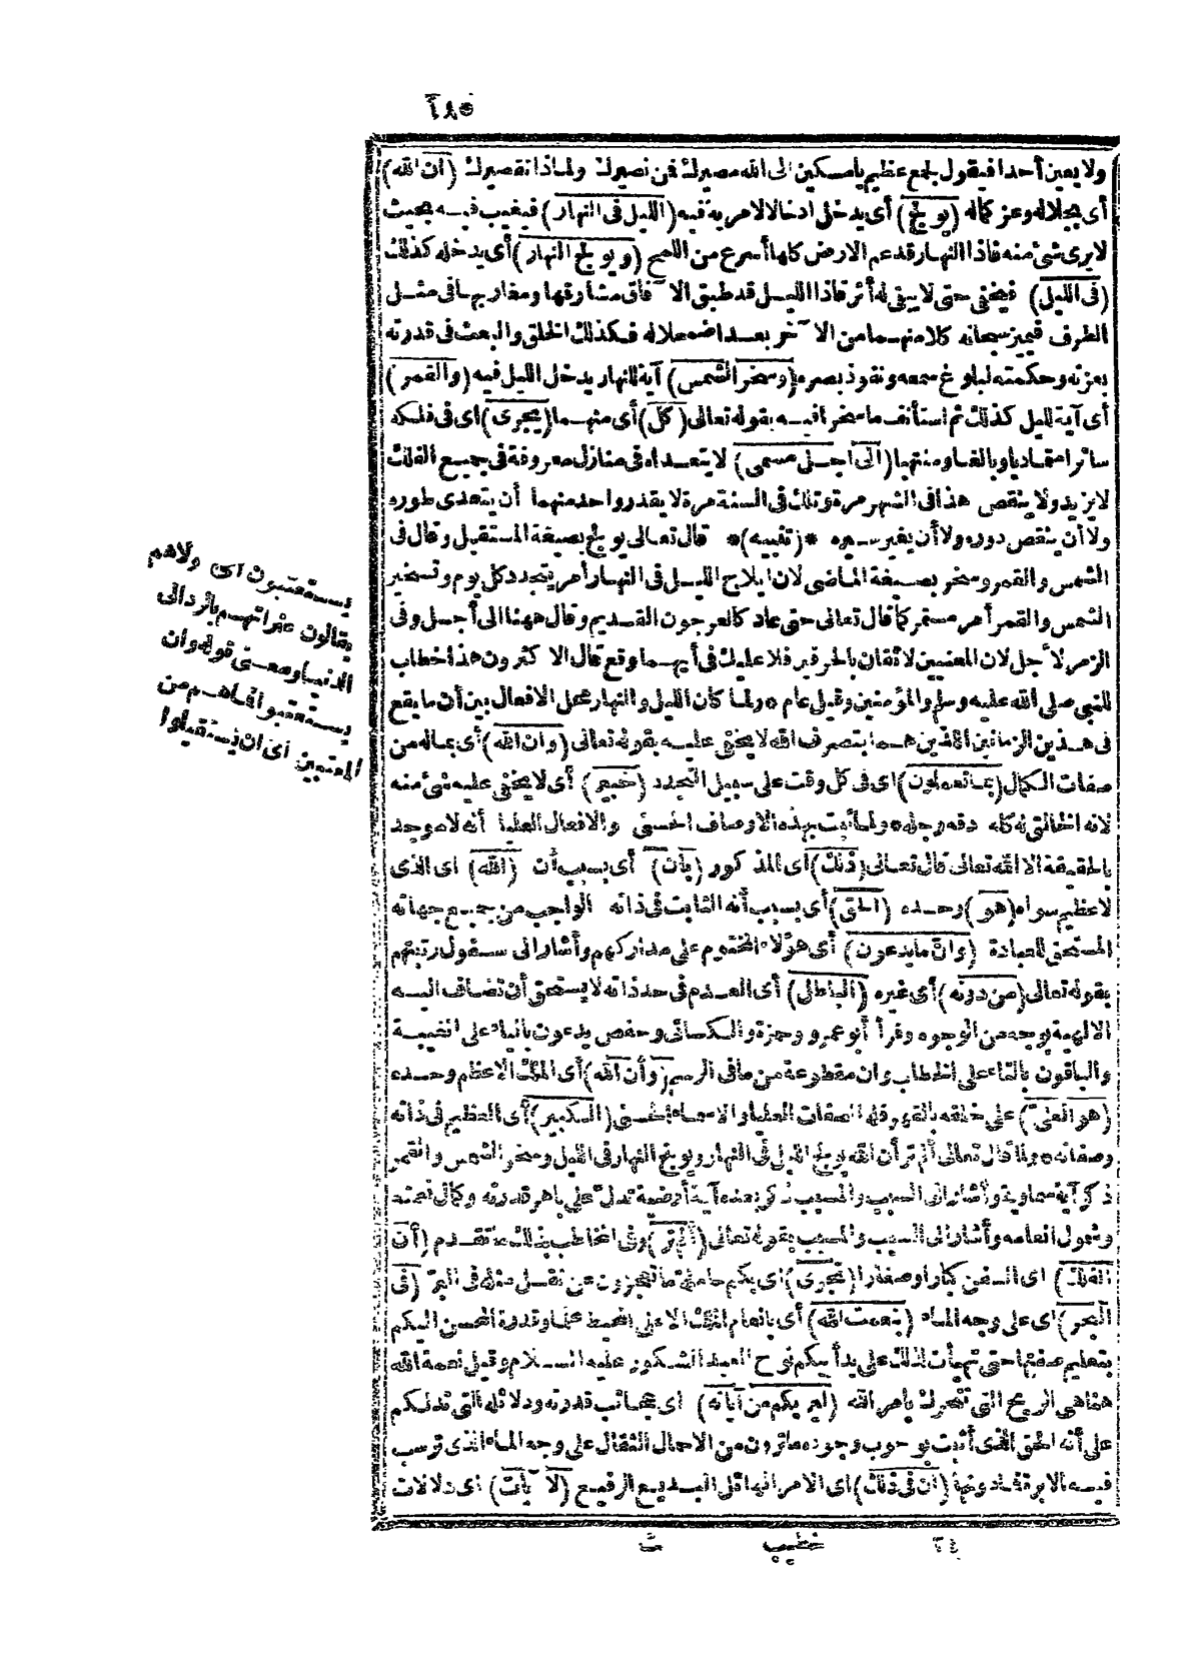 ١٨٥
ولا يعين أحدا فيقول بلمع عظيم يا مسكين الى الله مصيرك فمن نصيرك ولماذا تقصيرك (ان الله)
أى بجلاله وعز كماله (يولج) أى يدخل ادخالا لا مرية فيه (الليل فى النهار) فيغيب فيه بحيث
لا يرى شئ منه فاذا النهار قد عم الارض كلها أسرع من اللمح (ويولج النهار) أى يدخله كذلك
(فى الليل) فيخفى حتى لا يبقى له أثر فاذا الليل قد طبق الآفاق مشارقها ومغاربها فى مثل
الطرف فيميز سبحانه كلا منهما من الآخر بعد اضمحلاله فكذلك الخلق والبعث فى قدرته
بعزته وحكمته لبلوغ سمعه ونفوذ بصره (وسخر الشمس) آية للنهار يدخل الليل فيه (والقمر)
أى آية لليل كذلك ثم استأنف ما سخرا فيه بقوله تعالى (كل) أى منهما (يجرى) اى فى فلكه
سائرا متماديا وبالغا ومنتهيا (الى اجل مسمى) لا يتعداه فى منازل معروفة فى جميع الفلك
لا يزيد ولا ينقص هذا فى الشهر مرة وتلك فى السنة مرة لا يقدر واحد منهما أن يتعدى طوره
ولا أن ينقص دوره ولا أن يغير سيره *(تنبيه)* قال تعالى يولج بصيغة المستقبل وقال فى
الشمس والقمر وسخر بصيغة الماضى لان ايلاج الليل فى النهار أمر يتجدد كل يوم وتسخير
الشمس والقمر أمر مستمر كما قال تعالى حتى عاد كالعرجون القديم وقال ههنا الى أجل وفى
الزمر لأجل لان المعنيين لائقان بالحرفين فلا عليك فى أيهما وقع قال الاكثرون هذا خطاب
للنبى صلى الله عليه وسلم والمؤمنين وقيل عام * ولما كان الليل والنهار محل الافعال بين أن ما يقع
فى هذين الزمانين اللذين هما بتصرف الله لا يخفى عليه بقوله تعالى (وان الله) أى بماله من
صفات الكمال (بما تعملون) اى فى كل وقت على سبيل التجدد (خبير) أى لا يخفى عليه شئ منه
لانه الخالق له كله دقه وجله * ولما ثبت بهذه الاوصاف الحسنى والافعال العليا أنه لا موجد
بالحقيقة الا الله تعالى قال تعالى (ذلك) اى المذكور (بأن) أى بسبب أن (الله) اى الذى
لا عظيم سواه (هو) وحده (الحق) أى بسبب أنه الثابت فى ذاته الواجب من جميع جهاته
المستحق للعبادة (وان ما يدعون) أى هؤلاء المختوم على مداركهم وأشار الى سفول رتبتهم
بقوله تعالى (من دونه) أى غيره (الباطل) أى العدم فى حد ذاته لا يستحق أن تضاف اليه
الالهية بوجه من الوجوه وقرأ أبو عمرو وحمزة والكسائى وحفص يدعون بالياء على الغيبة
والباقون بالتاء على الخطاب وان مقطوعة من ما فى الرسم (وأن الله) أى الملك الاعظم وحده
(هو العلى) على خلقه بالقهر فله الصفات العليا والاسماء الحسنى (الكبير) أى العظيم فى ذاته
وصفاته * ولما قال تعالى ألم تر أن الله يولج الليل فى النهار ويولج النهار فى الليل وسخر الشمس والقمر
ذكر آية سماوية وأشار الى السبب والمسبب ذكر بعده آية أرضية تدل على باهر قدرته وكمال نعمته
وشمول انعامه وأشار الى السبب والمسبب بقوله تعالى (ألم تر) وفى المخاطب بذلك ما تقدم (أن
الفلك) اى السفن كبارا وصغارا (تجرى) اى بكم حاملة ما تعجزون عن نقل مثله فى البر (فى
البحر) اى على وجه الماء (بنعمت الله) أى بانعام الملك الاعلى المحيط علما وقدرة المحسن اليكم
بتعليم صنعتها حتى تهيأت لذلك على يد أبيكم نوح العبد الشكور عليه السلام وقيل نعمة الله
هنا هى الريح التى تتحرك بامر الله (ليريكم من آياته) اى عجائب قدرته ودلائله التى تدلكم
على أنه الحق الذى أثبت بوجوب وجوده ما ترون من الاحمال الثقال على وجه الماء الذى ترسب
فيه الابرة فما دونها (ان فى ذلك) اى الامر الهائل البديع الرفيع (لآيات) اى دلالات
يستعتبون اى ولاهم
يقالون عثراتهم بالرد الى
الدنيا ومعنى قوله وان
يستعتبوا فما هم من
المعتبين اى ان يستقيلوا
٢٤ خطيب ث